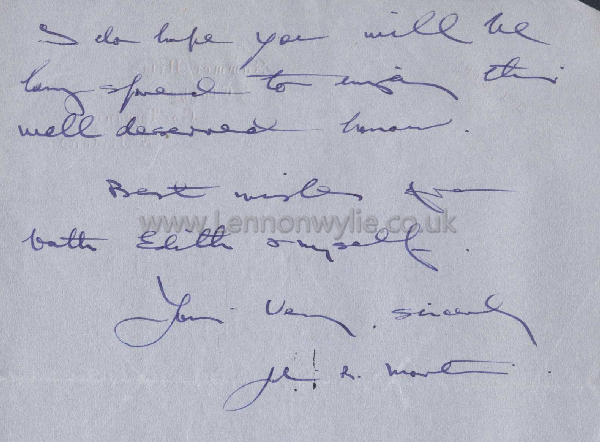 I do hope you will be
long spared to enjoy this
well deserved honour.
Best wishes from
www.Lennonwylie.co.uk
both Edith & myself.
Yours Very sincerely
John R. Martin.